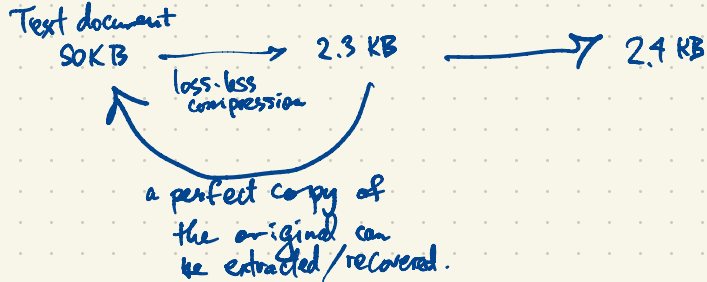 Text document
50KB
2.3 KB
2.4 KB
loss-less
compression
a perfect copy of
the original can
be extracted/recovered.